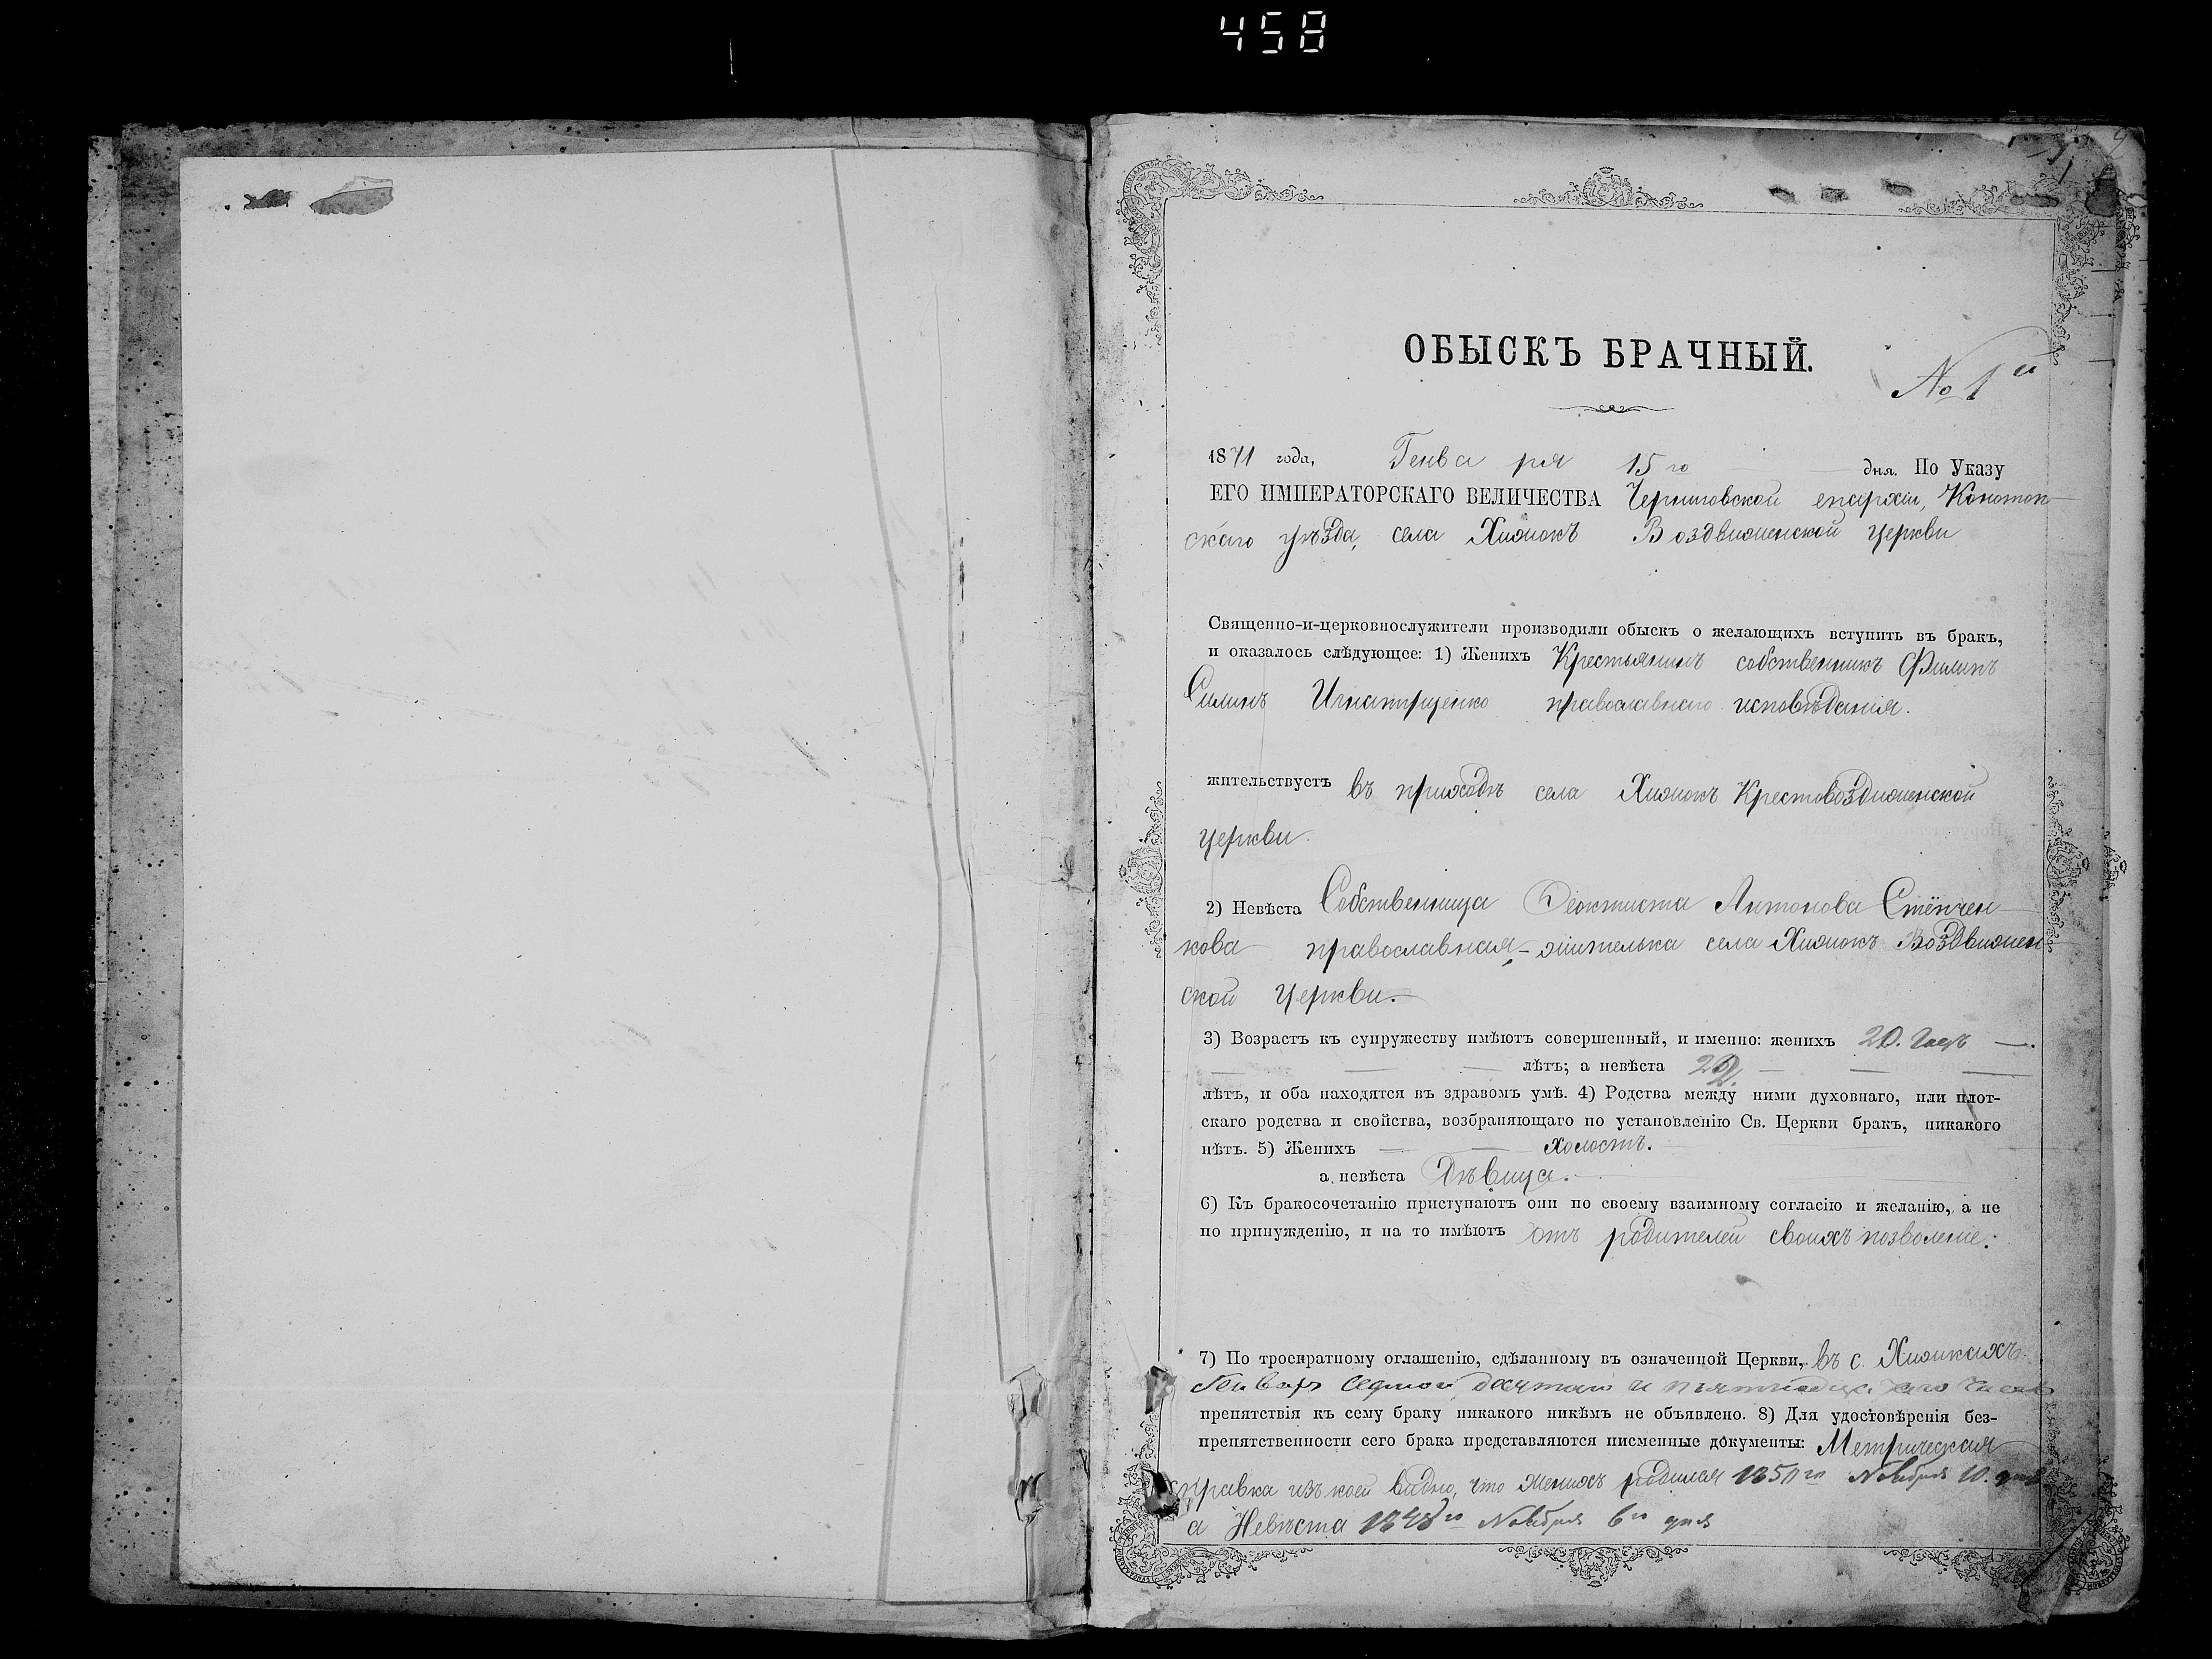 458
2
ОБЫСКЪ БРАЧНЫЙ.
№ 1й
1871 года, Генваря 15го дня. По Указу
ЕГО ИМПЕРАТОРСКАГО ВЕЛИЧЕСТВА Черниговской епархіи, Конотоп
скаго уѣзда, села Хижокъ Воздвиженской церкви
Священно-и-церковнослужители производили обыскъ о желающихъ вступить въ бракъ,
и оказалось слѣдующее: 1) Женихъ Крестьянинъ собственникъ Филипъ
Силинъ Игнатущенко православнаго исповѣданія.
жительствуетъ въ приходѣ села Хижокъ Крестовоздвиженской
церкви.
2) Невѣста Собственница Феоктиста Антонова Стёпчен
кова православная, - жителька села Хижокъ Воздвижен
ской церкви.
3) Возрастъ къ супружеству имѣютъ совершенный, и именно: женихъ 20.
лѣтъ; а невѣста 22.
лѣтъ, и оба находятся въ здравомъ умѣ. 4) Родства между ними духовнаго, или плот-
скаго родства и свойства, возбраняющаго по установленію Св. Церкви бракъ, никакого
нѣтъ. 5) Женихъ холостъ.
а невѣста Дѣвица.
6) Къ бракосочетанію приступаютъ они по своему взаимному согласію и желанію, а не
по принужденію, и на то имѣютъ отъ родителей своихъ позволеніе.
7) По троекратному оглашенію, сдѣланному въ означенной Церкви, въ с. Хижкахъ
Генваря седмой и
препятствія къ сему браку никакого никѣмъ не объявлено. 8) Для удостовѣренія без-
препятственности сего брака представляются писменные документы: Метрическая
справка изъ коей видно, что женихъ родился 1850го Ноября 10. дня
а Невѣста 1848го Ноября 6го дня